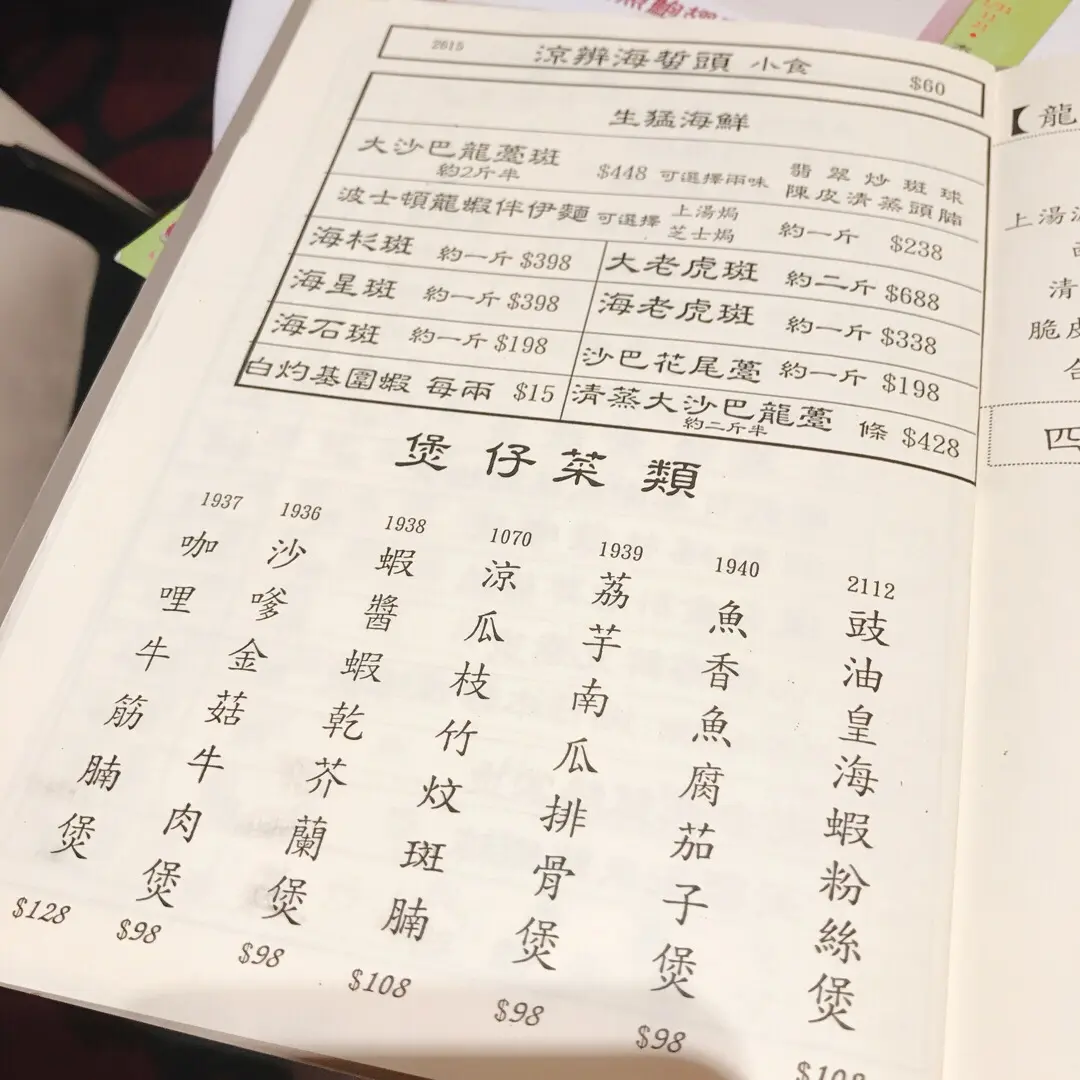 2615 涼辦海蜇頭 小食 $60
生猛海鮮
大沙巴龍躉斑 約2斤半 $448 可選擇兩味 翡翠炒斑球 陳皮清蒸頭腩
波士頓龍蝦伴伊麵 可選擇 上湯焗 芝士焗 約一斤 $238
海杉斑 約一斤 $398
大老虎斑 約二斤 $688
海星斑 約一斤 $398
海老虎斑 約一斤 $338
海石斑 約一斤 $198
沙巴花尾躉 約一斤 $198
白灼基圍蝦 每兩 $15
清蒸大沙巴龍躉 約二斤半 條 $428
煲仔菜類
2112 豉油皇海蝦粉絲煲 $108
1940 魚香魚腐茄子煲 $98
1939 荔芋南瓜排骨煲 $98
1070 涼瓜枝竹炆斑腩 $108
1938 蝦醬蝦乾芥蘭煲 $98
1936 沙嗲金菇牛肉煲 $98
1937 咖哩牛筋腩煲 $128
【龍
上湯
清
脆皮
四